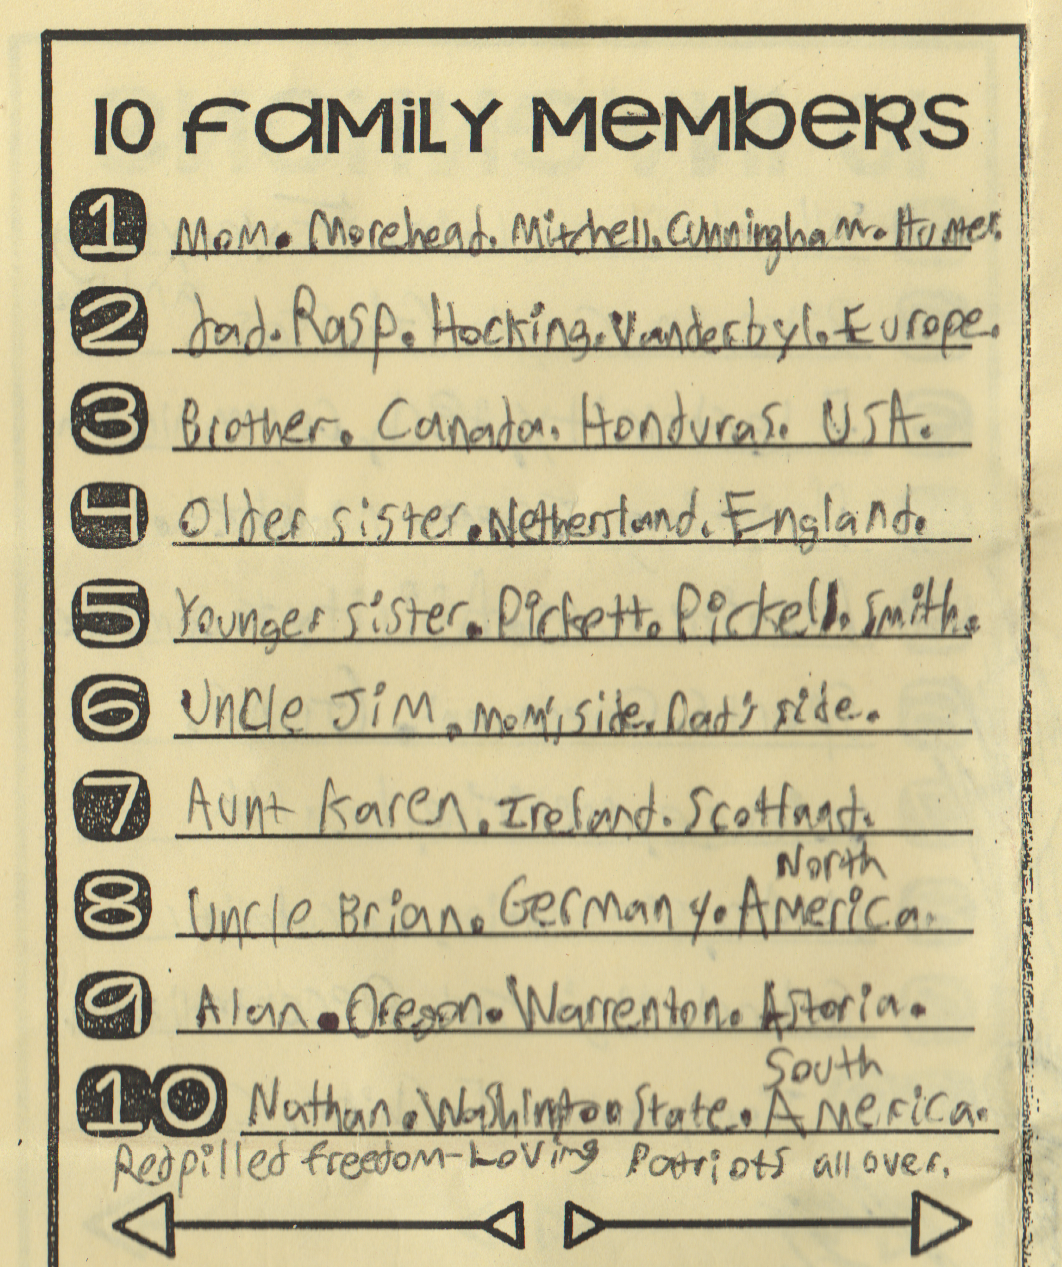 10 FAMILY MEMBERS
1 Mom. Morehead. Mitchell. Cunningham. Hunter.
2 Dad. Rasp. Hocking. Vanderbyl. Europe.
3 Brother. Canada. Honduras. USA.
4 Older sister. Netherland. England.
5 Younger sister. Pickett. Pickell. Smith.
6 Uncle Jim. mom's side. Dad's side.
7 Aunt Karen. Ireland. Scotland.
North
8 Uncle Brian. Germany. America.
9 Alan. Oregon. Warrenton. Astoria.
South
10 Nathan. Washington State. America.
Redpilled freedom-Loving Patriots all over.